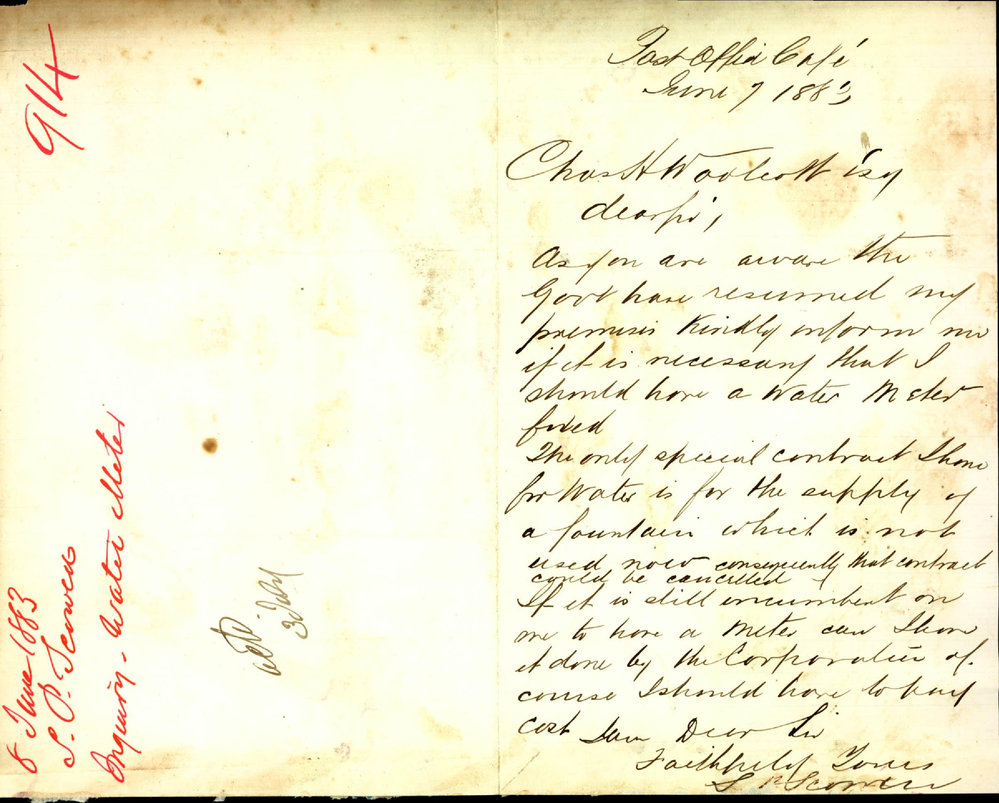 914
8 June 1883
S. P. Scowen
Inquiry - Water Meter
3 July
Post Office Café
June 7 1883
Chas H Woolcott Esq
dear sir,
As you are aware the
Govt have resumed my
premises Kindly inform me
if it is necessary that I
should have a Water Meter
fixed
The only special contract I have
for Water is for the supply of
a fountain which is not
used now consequently that contract
could be cancelled
If it is still incumbent on
me to have a Meter can I have
it done by the Corporation of
course I should have to pay
cost I am Dear Sir
Faithfully Yours
S P Scowen